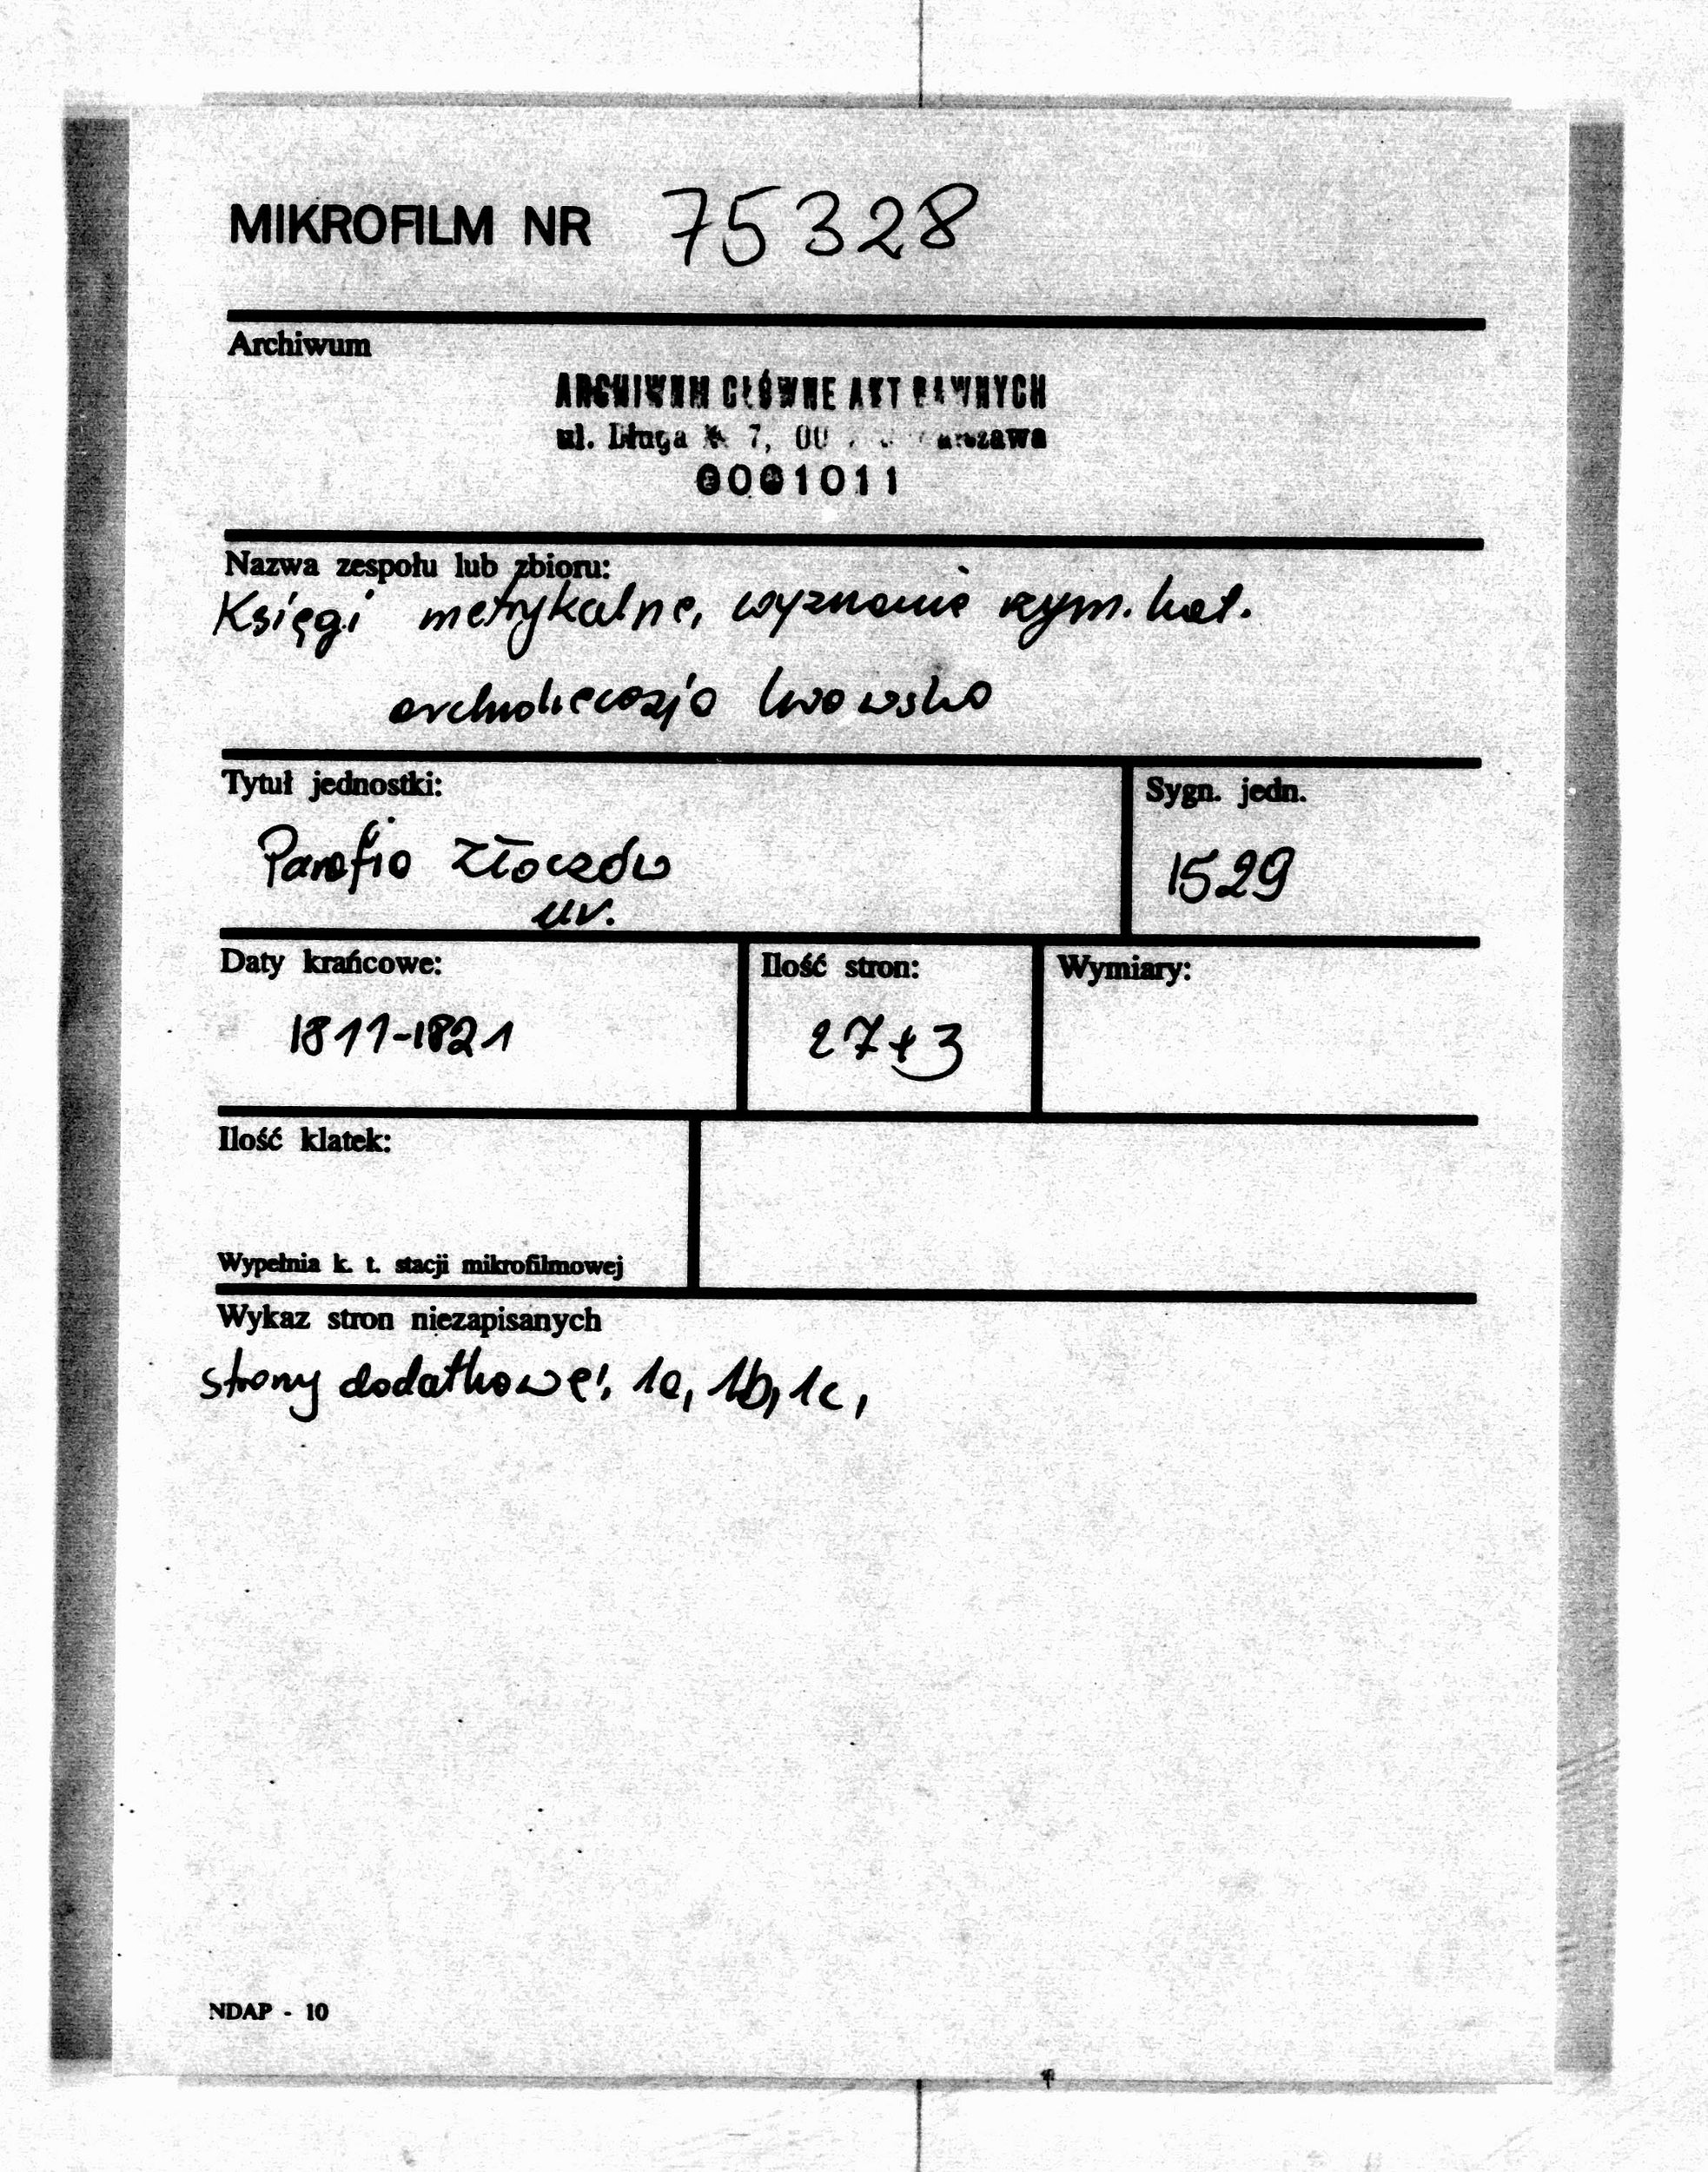 MIKROFILM NR 75328
Archiwum
ARCHIWUM GŁÓWNE AKT DAWNYCH
ul. Długa 7, 00 Warszawa
0001011
Nazwa zespołu lub zbioru:
Księgi metrykalne, wyznanie rzym. kat.
archidiecezja lwowska
Tytuł jednostki:
Sygn. jedn.
Parafia Złoczów
ur.
1529
Daty krańcowe:
Ilość stron:
Wymiary:
1811-1821
27+3
Ilość klatek:
Wypełnia k. t. stacji mikrofilmowej
Wykaz stron niezapisanych
strony dodatkowe: 1a, 1b, 1c,
NDAP - 10